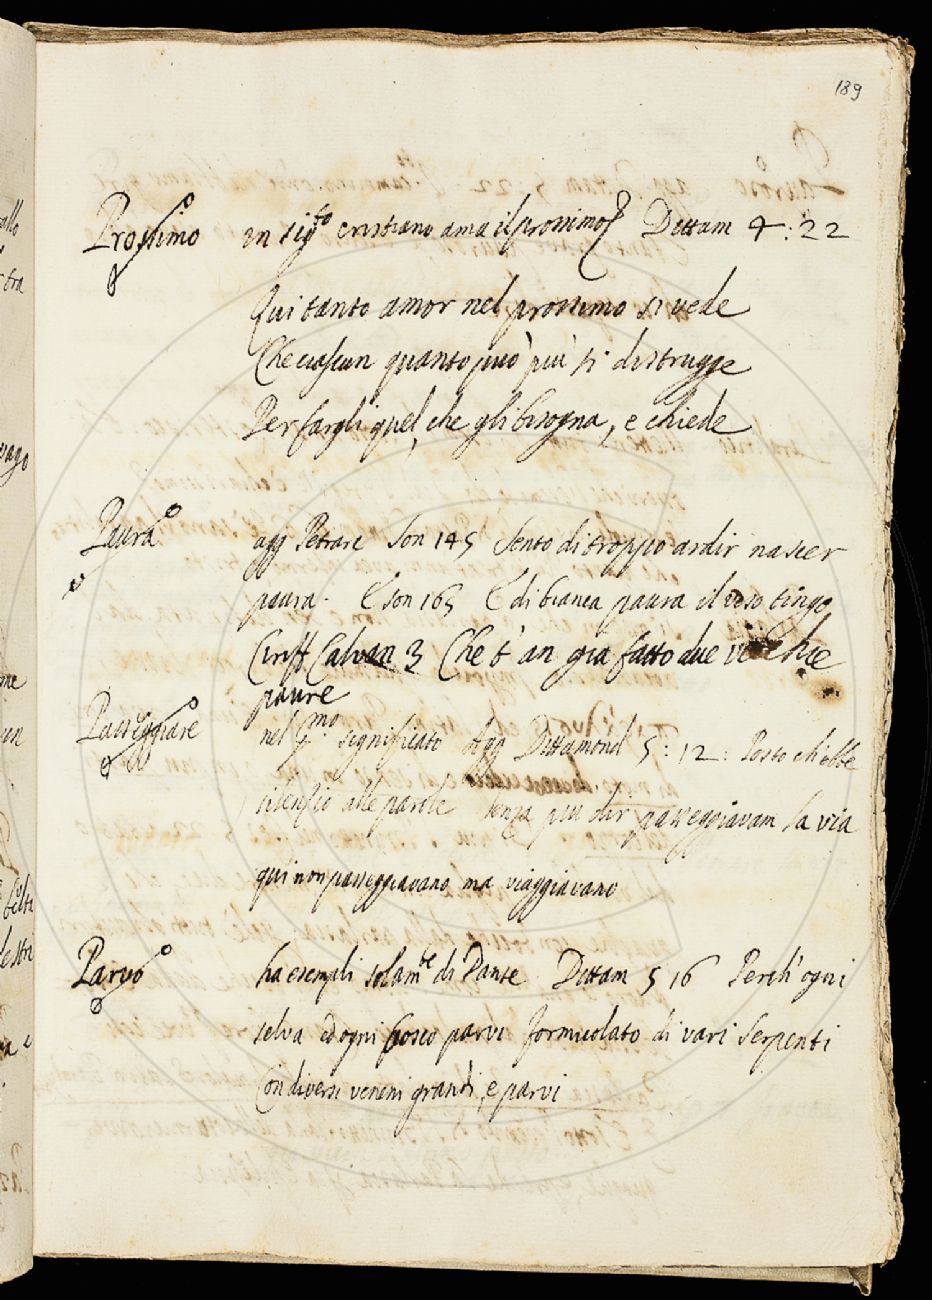 189
Prossimo in sig.to cristiano ama il prossimo Dittam 4:22
Qui tanto amor nel prossimo si vede
Che ciascun quanto può più si distrugge
Per fargli quel, che gli bisogna, e chiede
Paura agg Petrarc Son 145 Sento di troppo ardir nascer
paura. E Son 165 E di bianca paura il viso tingo
Ciriff Calvan 3 Che t'an gia fatto due vecchie
paure
Passeggiare nel p.mo significato Agg Dittamond 5:12: Posto ch'ebbe
silenzio alle parole senza piu dir passeggiavam la via
qui non passeggiavano ma viaggiavano
Parvo ha esempli solam.te di Dante Dittam 5 16 Perch'ogni
selva ed ogni bosco parvi formicolato di vari Serpenti
Con diversi veneni grandi, e parvi